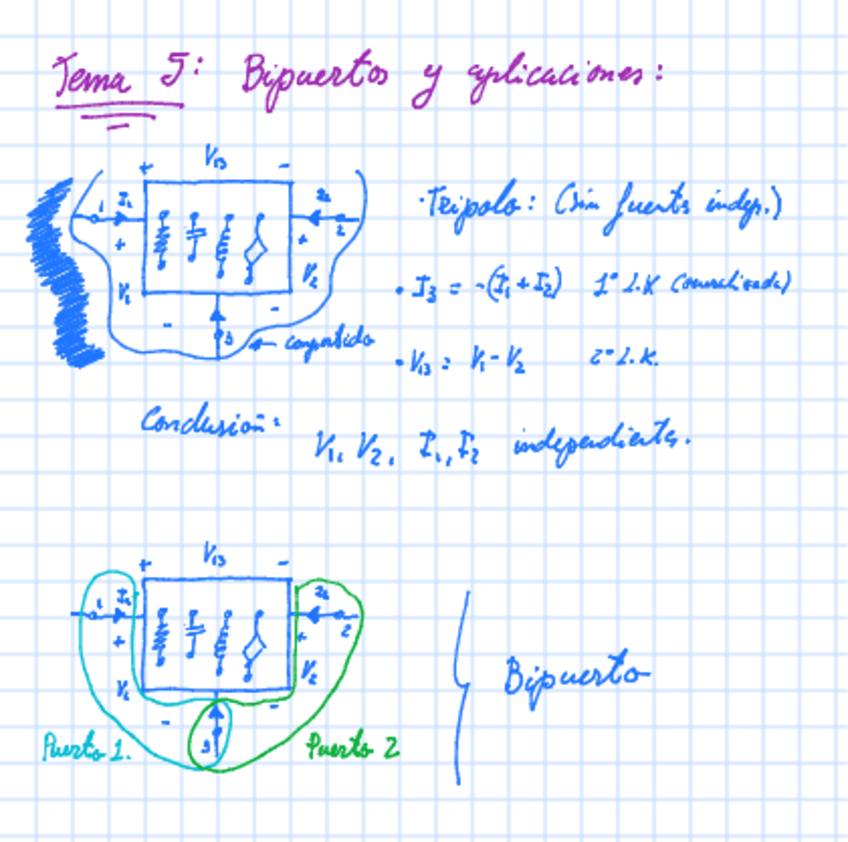 Tema 5: Bipuertos y aplicaciones:
+ V13 -
1 I1 I2 2
+ +
V1 V2
- -
3 ← compartido
· Tripolo: (sin fuents indep.)
· I3 = -(I1 + I2) 1º L.K (generalizada)
· V13 = V1 - V2 2º L.K.
Conclusión:
V1, V2, I1, I2 independients.
+ V13 -
1 I1 I2 2
+ +
V1 V2
- -
3
Puerto 1. Puerto 2
Bipuerto